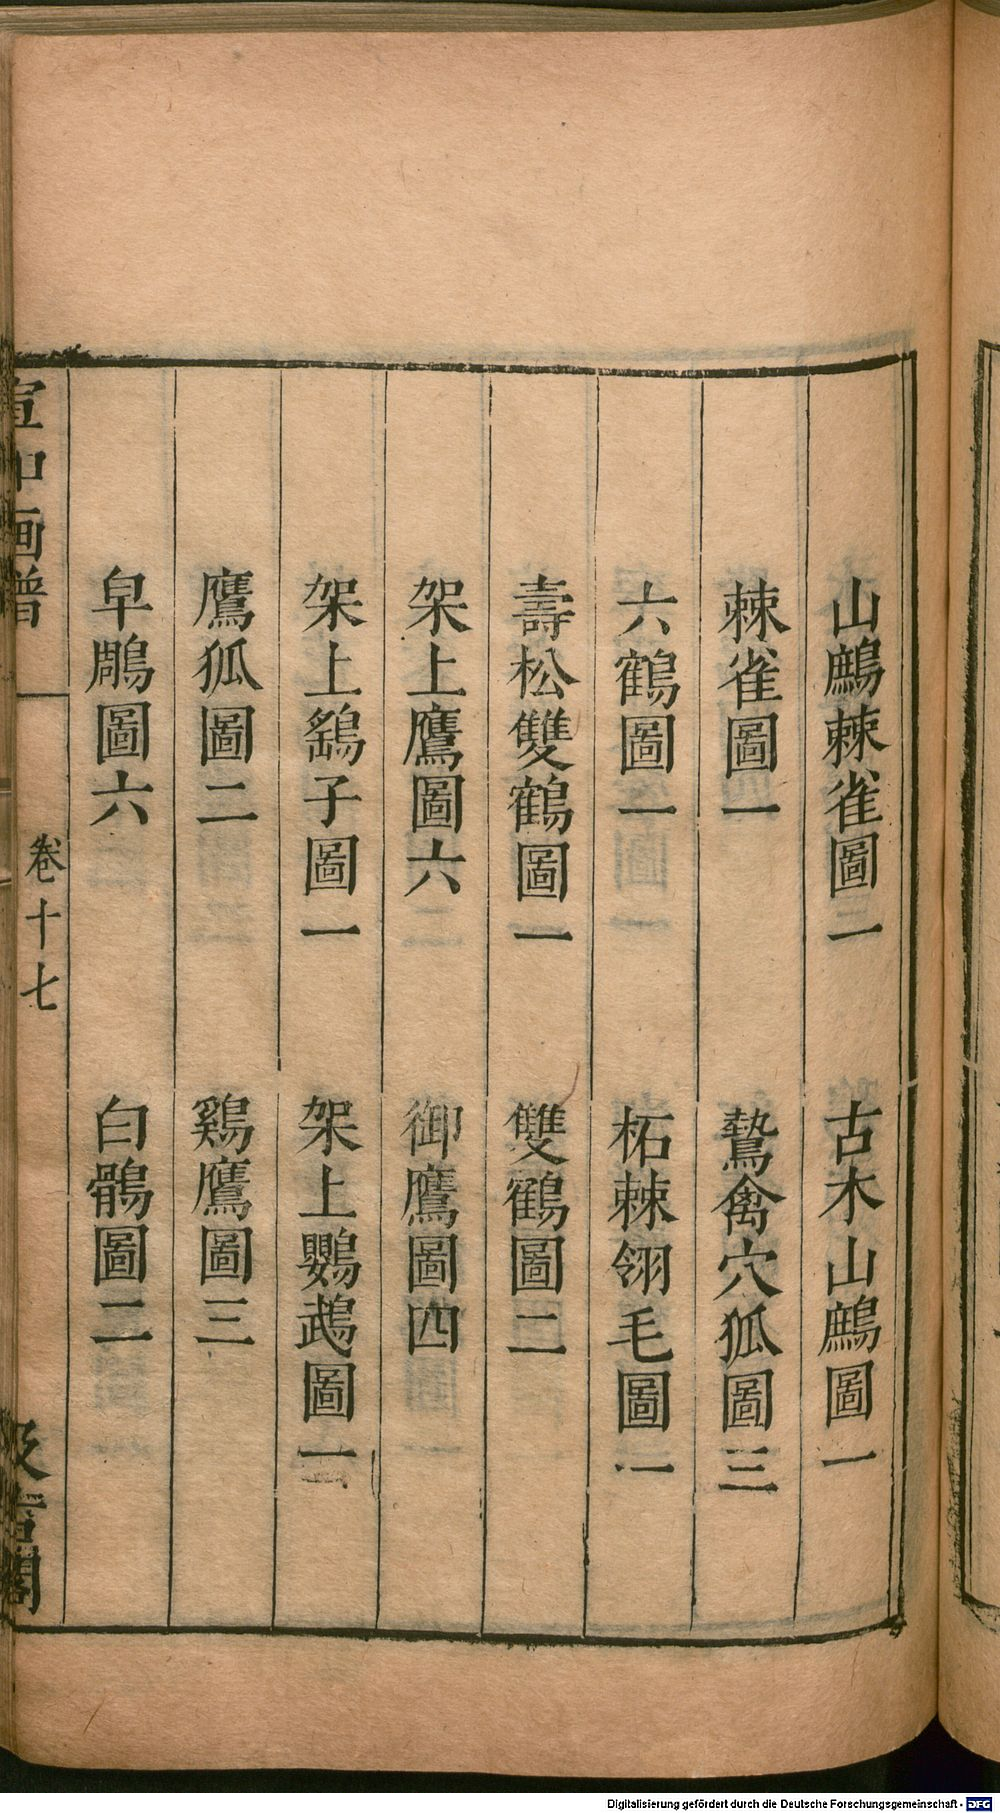 山鷓棘雀圖一 古木山鷓圖一
棘雀圖一 鷙禽穴狐圖三
六鶴圖一 柘棘翎毛圖一
壽松雙鶴圖一 雙鶴圖二
架上鷹圖六 御鷹圖四
架上鷂子圖一 架上鸚鵡圖一
鷹狐圖二 鷄鷹圖三
皁鵰圖六 白鶻圖二
宣和画譜 卷十七 汲古閣
Digitalisierung gefördert durch die Deutsche Forschungsgemeinschaft - DFG